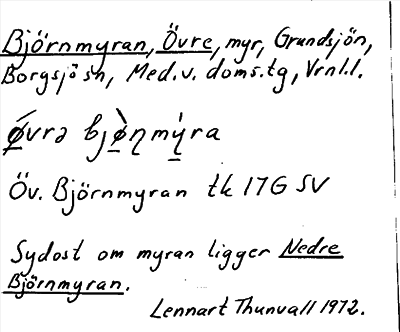 Björnmyran, Övre, myr, Grundsjön,
Borgsjö sn, Med.v. doms.tg, Vrnl.l.
ǿvrə bjø̀ɳmýra
Öv. Björnmyran tk 17G SV
Sydost om myran ligger Nedre
Björnmyran.
Lennart Thunvall 1972.